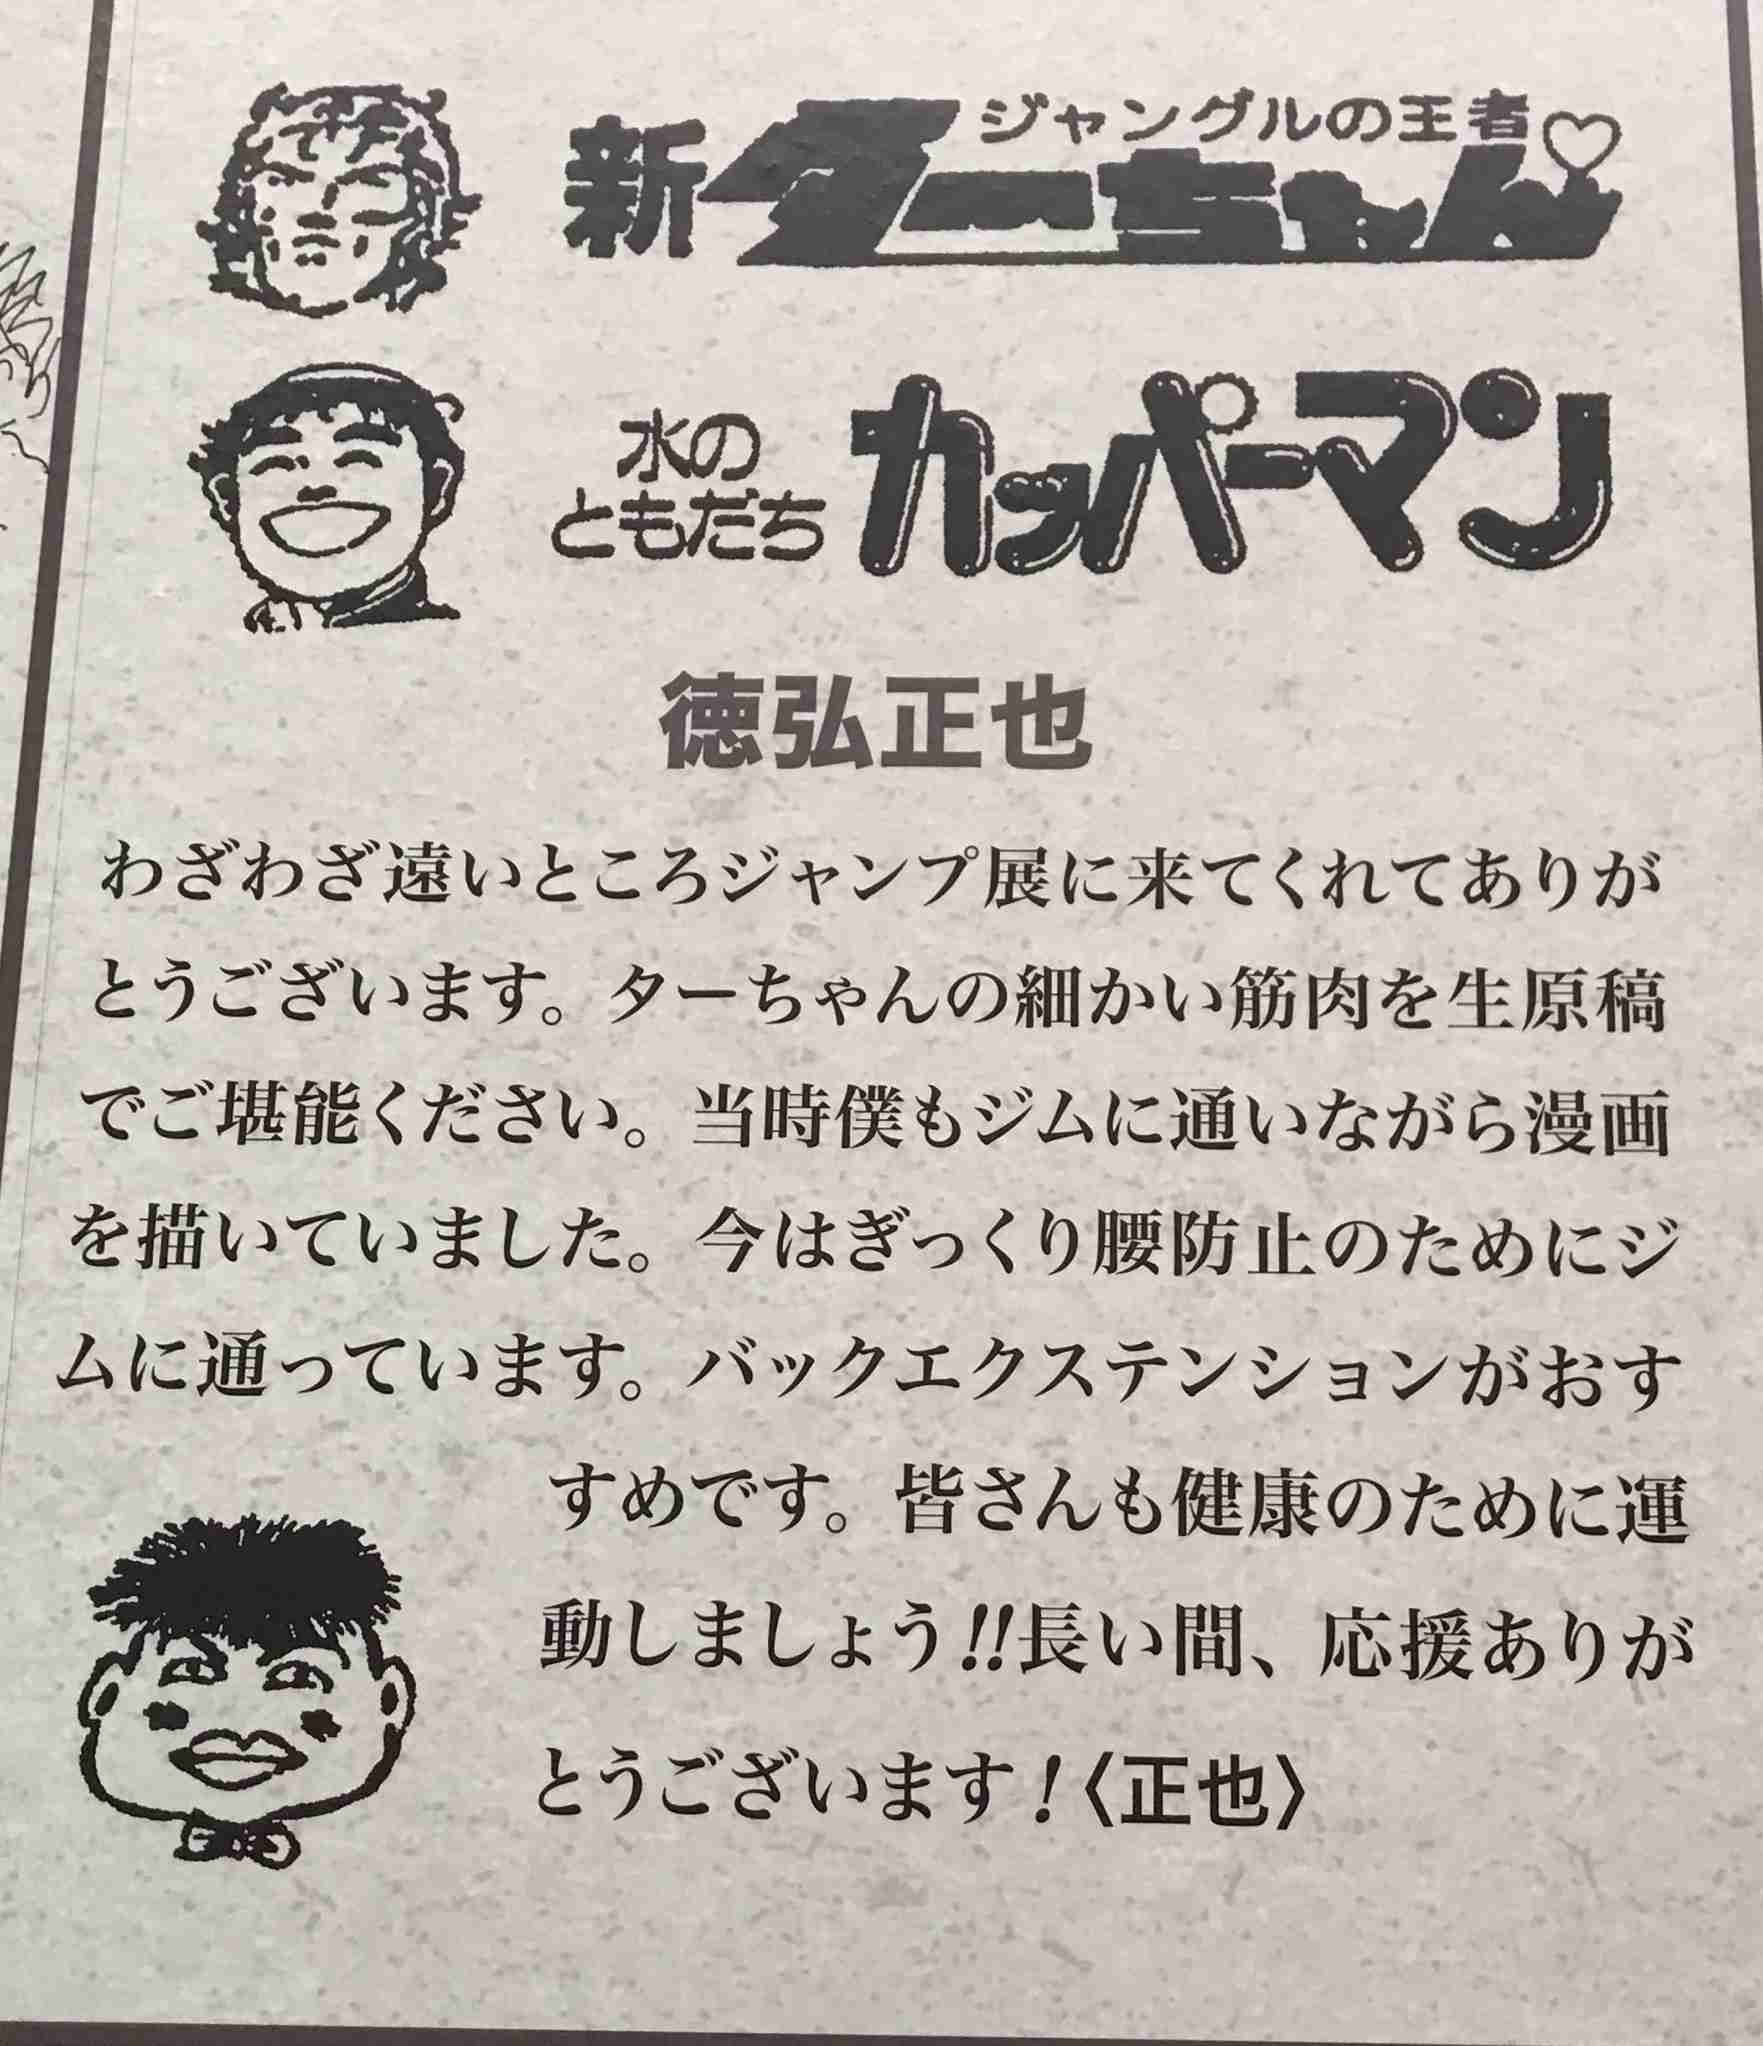 新ジャングルの王者ターちゃん♡
水の
ともだち
カッパーマン
徳弘正也
わざわざ遠いところジャンプ展に来てくれてありが
とうございます。ターちゃんの細かい筋肉を生原稿
でご堪能ください。当時僕もジムに通いながら漫画
を描いていました。今はぎっくり腰防止のためにジ
ムに通っています。バックエクステンションがおす
すめです。皆さんも健康のために運
動しましょう!!長い間、応援ありが
とうございます!〈正也〉